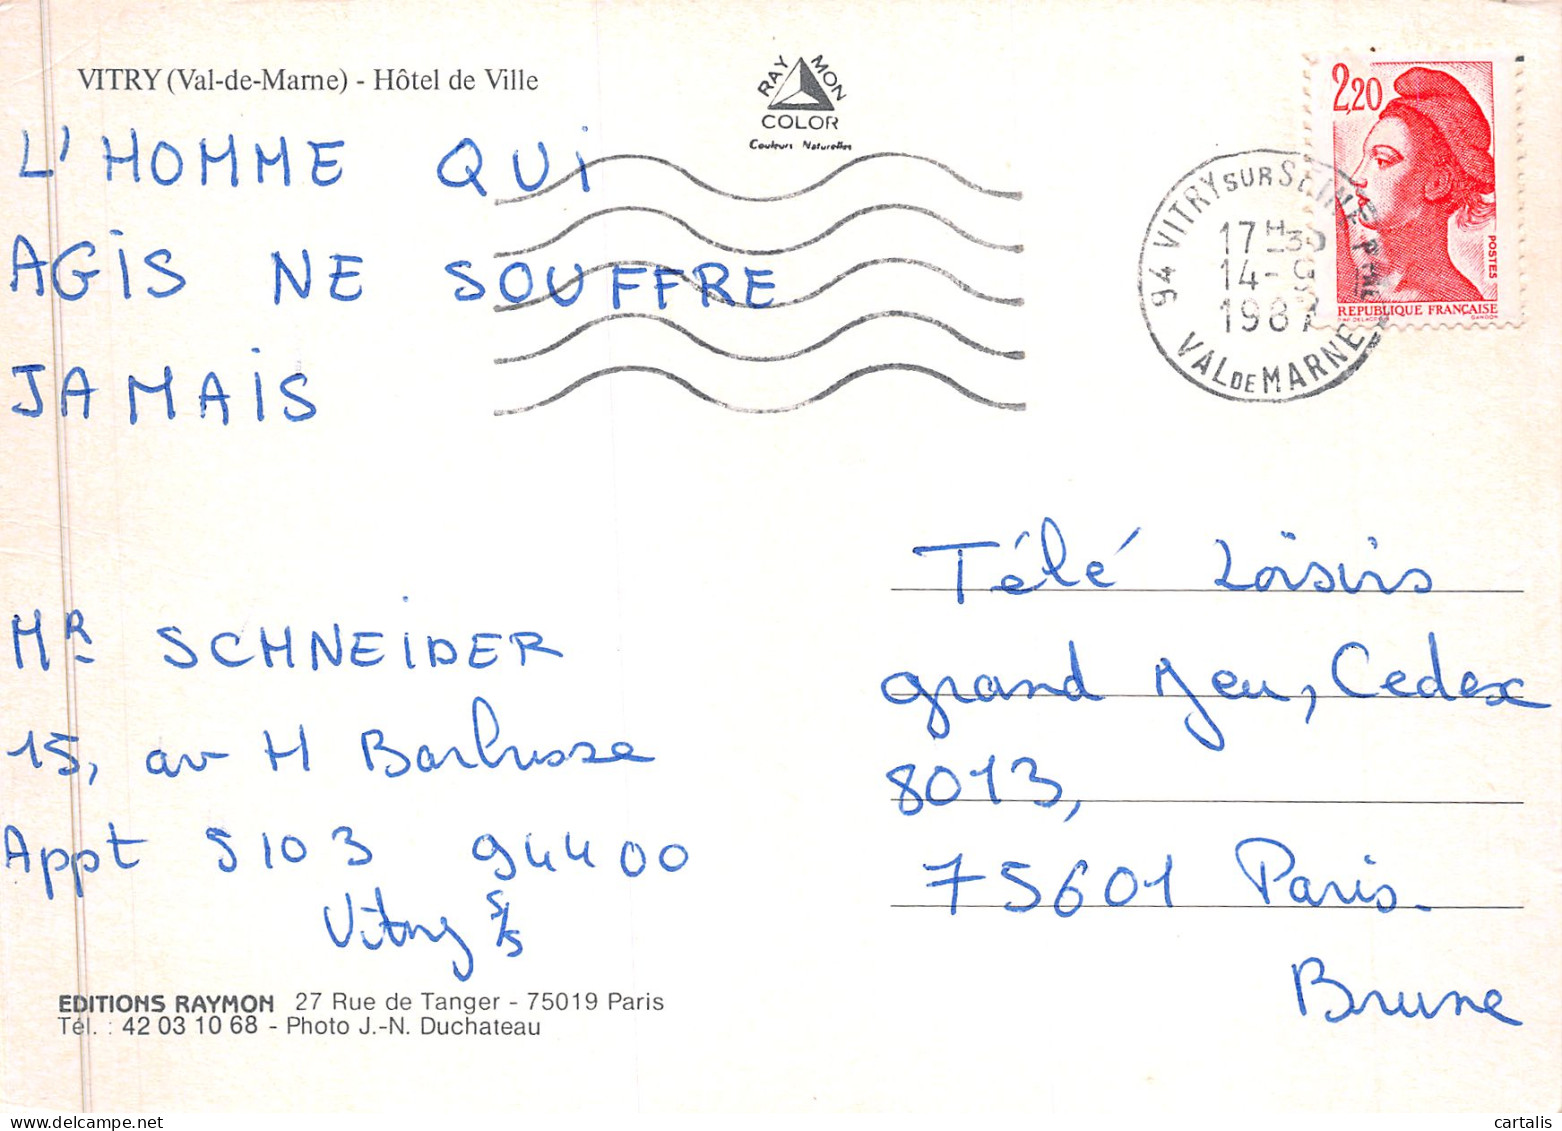 VITRY (Val-de-Marne) - Hôtel de Ville
RAYMON
COLOR
Couleurs Naturelles
2,20
POSTES
REPUBLIQUE FRANÇAISE
94 VITRY SUR SEINE PPAL
17H30
14-9
1987
VAL DE MARNE
L'HOMME QUi
AGiS NE SOUFFRE
JAMAiS
Télé Loisirs
grand Jeu, Cedex
8013,
75601 Paris.
Brune
MR SCHNEiDER
15, av H Barbusse
Appt S103 94400
Vitry S/S
EDITIONS RAYMON 27 Rue de Tanger - 75019 Paris
Tél. : 42 03 10 68 - Photo J.-N. Duchateau
cartalis